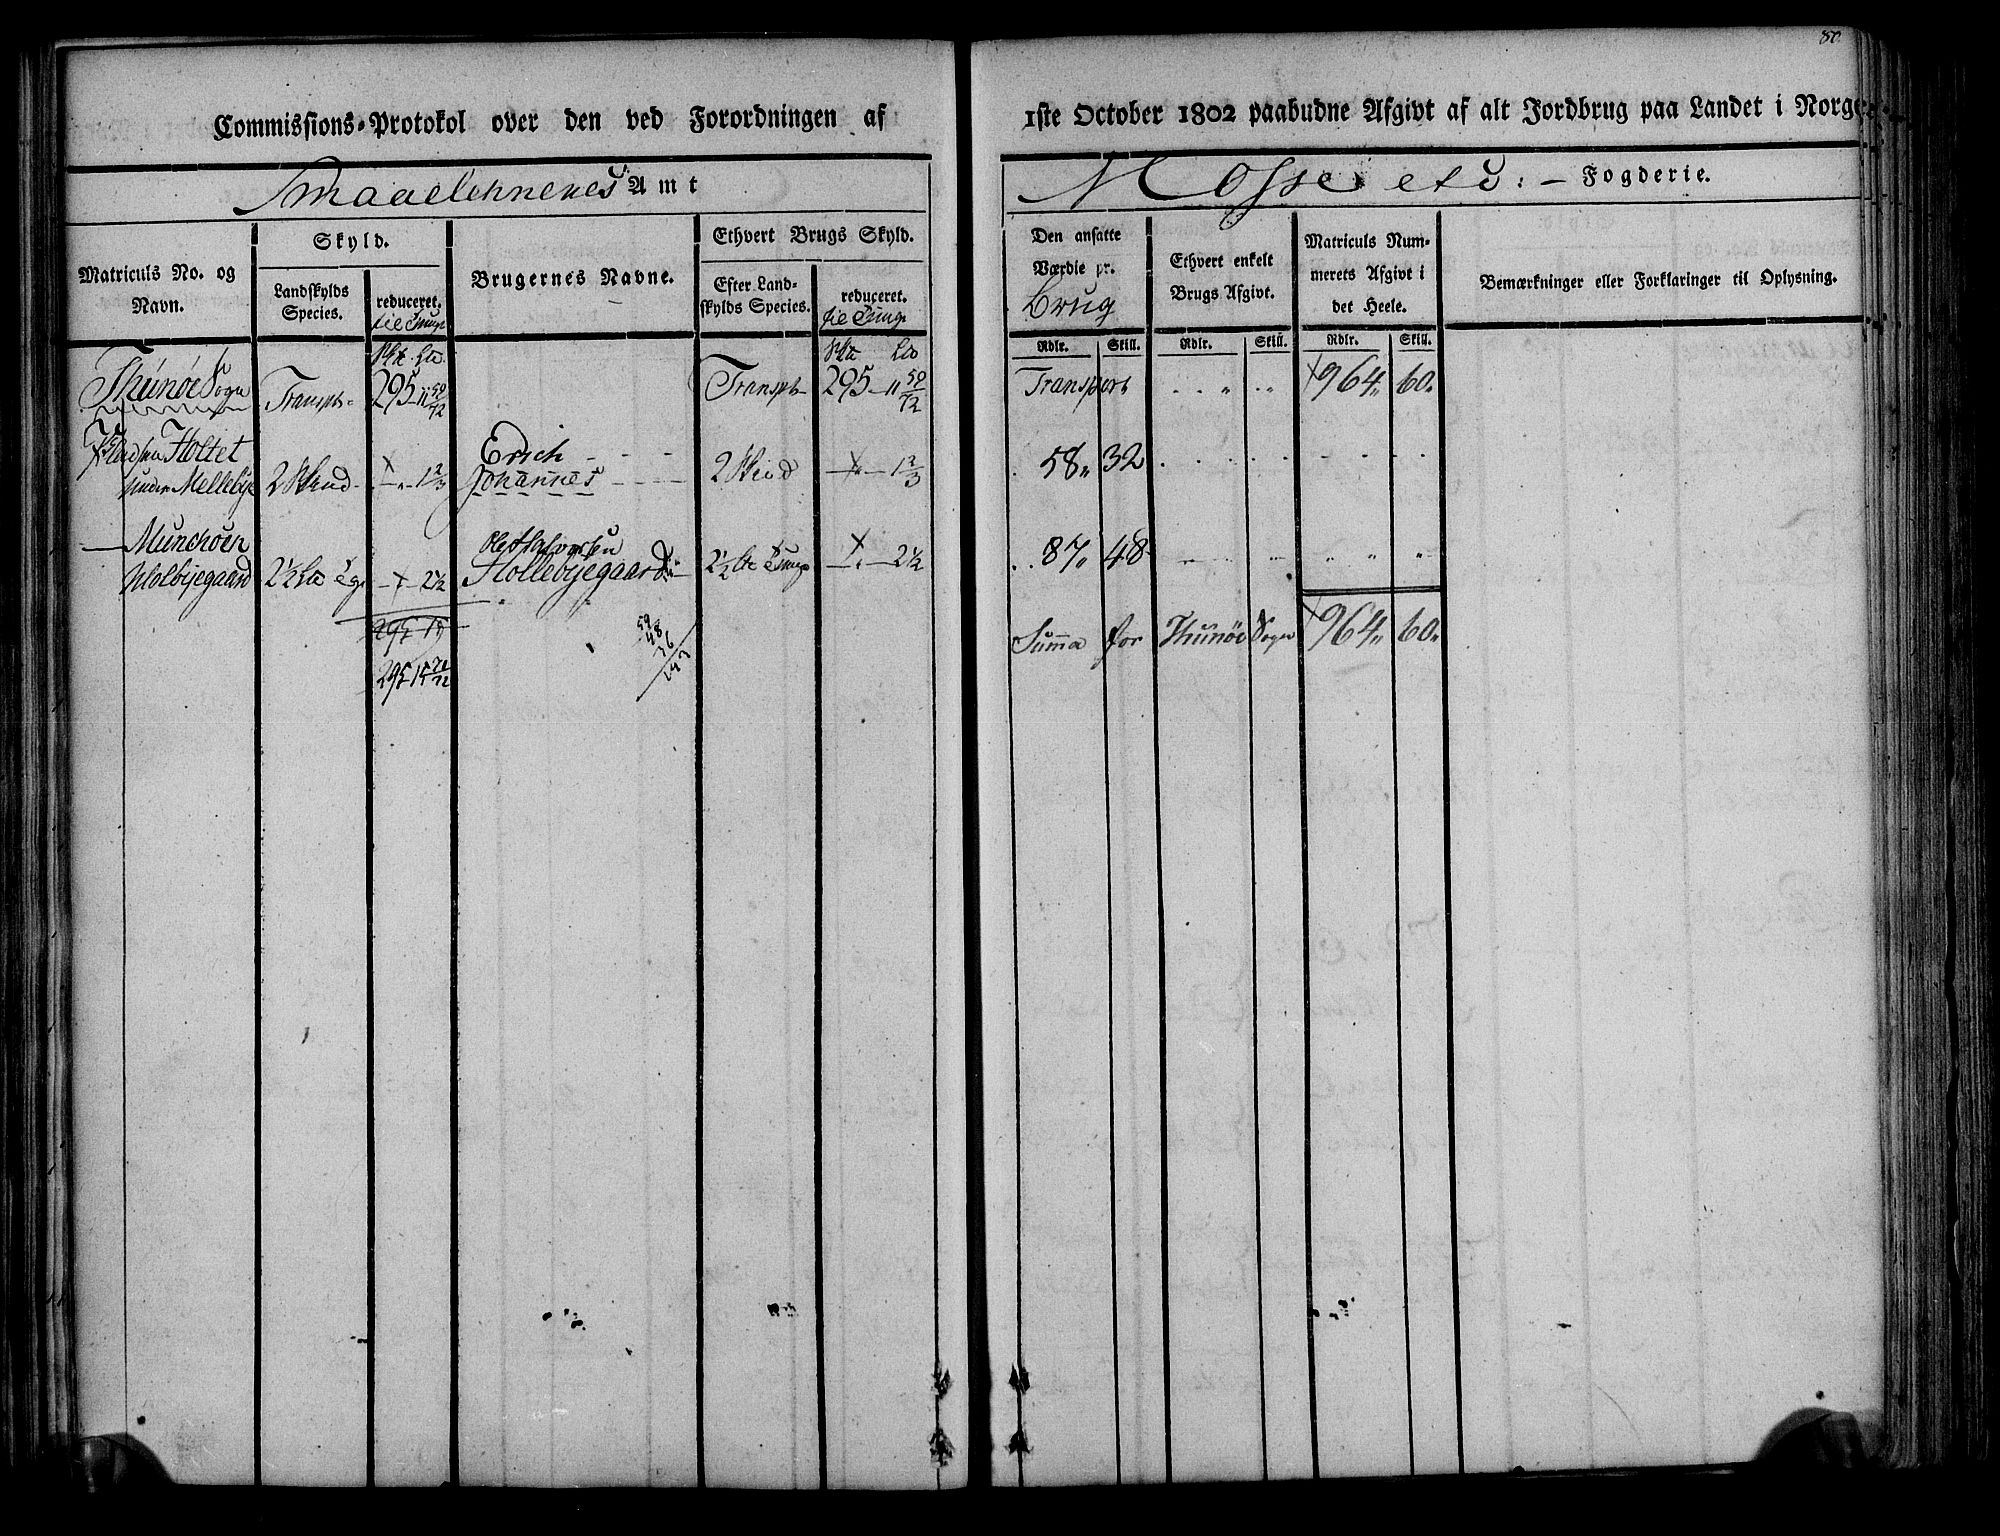 80.
Commissions-Protokol over den ved Forordningen af 1ste October 1802 paabudne Afgivt af alt Jordbrug paa Landet i Norge
Smaalehnenes Amt
Mosse etc: – Fogderie.
Matriculs No. og Navn.
Skyld.
Landskylds Species.
reduceret.
til Tunge
Brugernes Navne.
Ethvert Brugs Skyld.
Efter Landskylds Species.
reduceret.
til Tunge
Den ansatte Værdie pr. Brug
Ethvert enkelt Brugs Afgivt.
Matriculs Nummerets Afgivt i det Heele.
Bemærkninger eller Forklaringer til Oplysning.
Rdlr. Skill. Rdlr. Skill. Rdlr. Skill.
Thunøe Sogn Transpt 295 – 11 50/72 Transpt 295 – 11 50/72 Transport 964 „ 60 „
Pladsen Holtet
under Mellebye 2 Skind 1 2/3 Erich Johannes 2 Skind 1 2/3 58 „ 32
Munchøen
Holbyegaard 2 1/2 2 1/2 Ole Halvorsen Hollebyegaard 2 1/2 Tunge 2 1/2 87 „ 48
295 15
Summa for Thunøe Sogn 964 „ 60 „
59
48
36
143
295 15 71/72